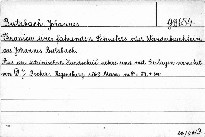 Butzbach Johannes. 98654.
Chronica eines fahrenden Schülers oder Wanderbüchlein
des Johannes Butzbach.
Aus der lateinischen Handschrift übers. und mit Beilagen vermehrt
von D. J. Becker. Regensburg 1869 Manz